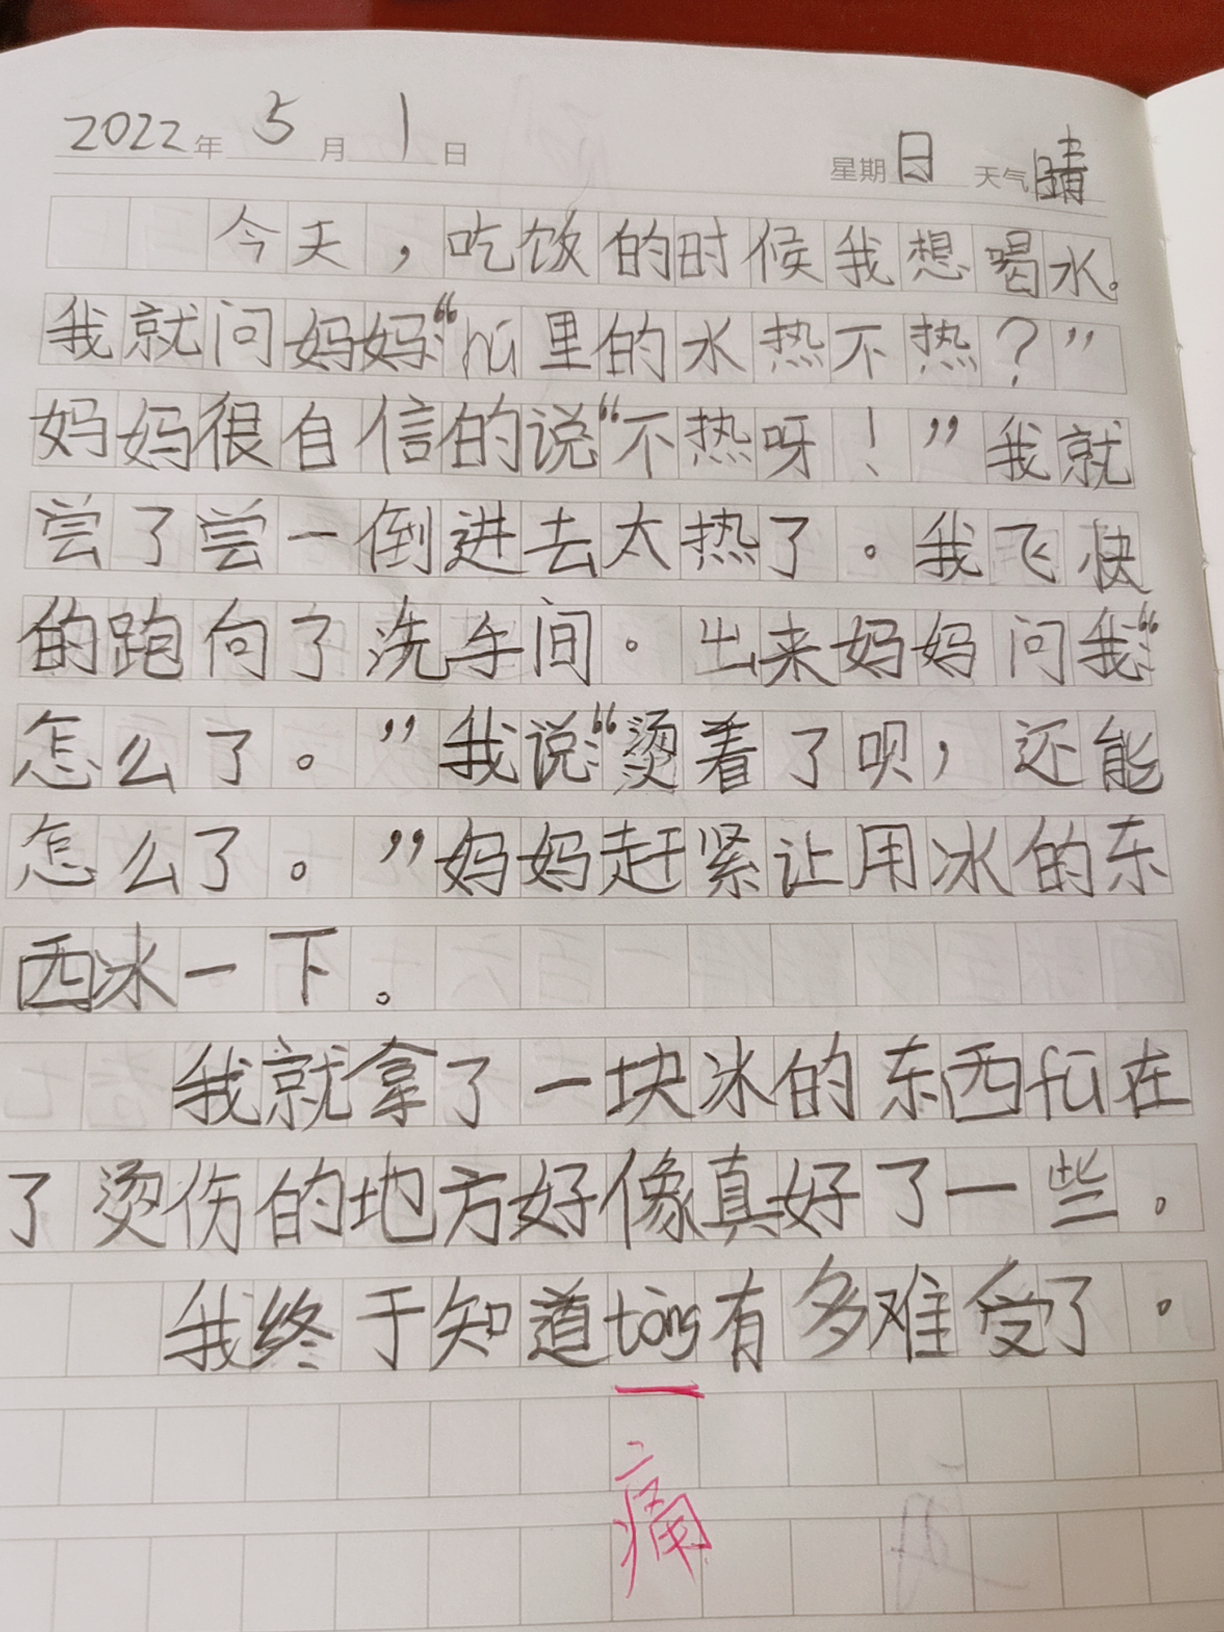 2022年5月1日 星期日 天气晴
今天，吃饭的时候我想喝水。
我就问妈妈:“hú里的水热不热？”
妈妈很自信的说:“不热呀！”我就
尝了尝一倒进去太热了。我飞快
的跑向了洗手间。出来妈妈问我:“
怎么了。”我说:“烫着了呗，还能
怎么了。”妈妈赶紧让用冰的东
西冰一下。
我就拿了一块冰的东西fū在
了烫伤的地方好像真好了一些。
我终于知道tòng有多难受了。
痛